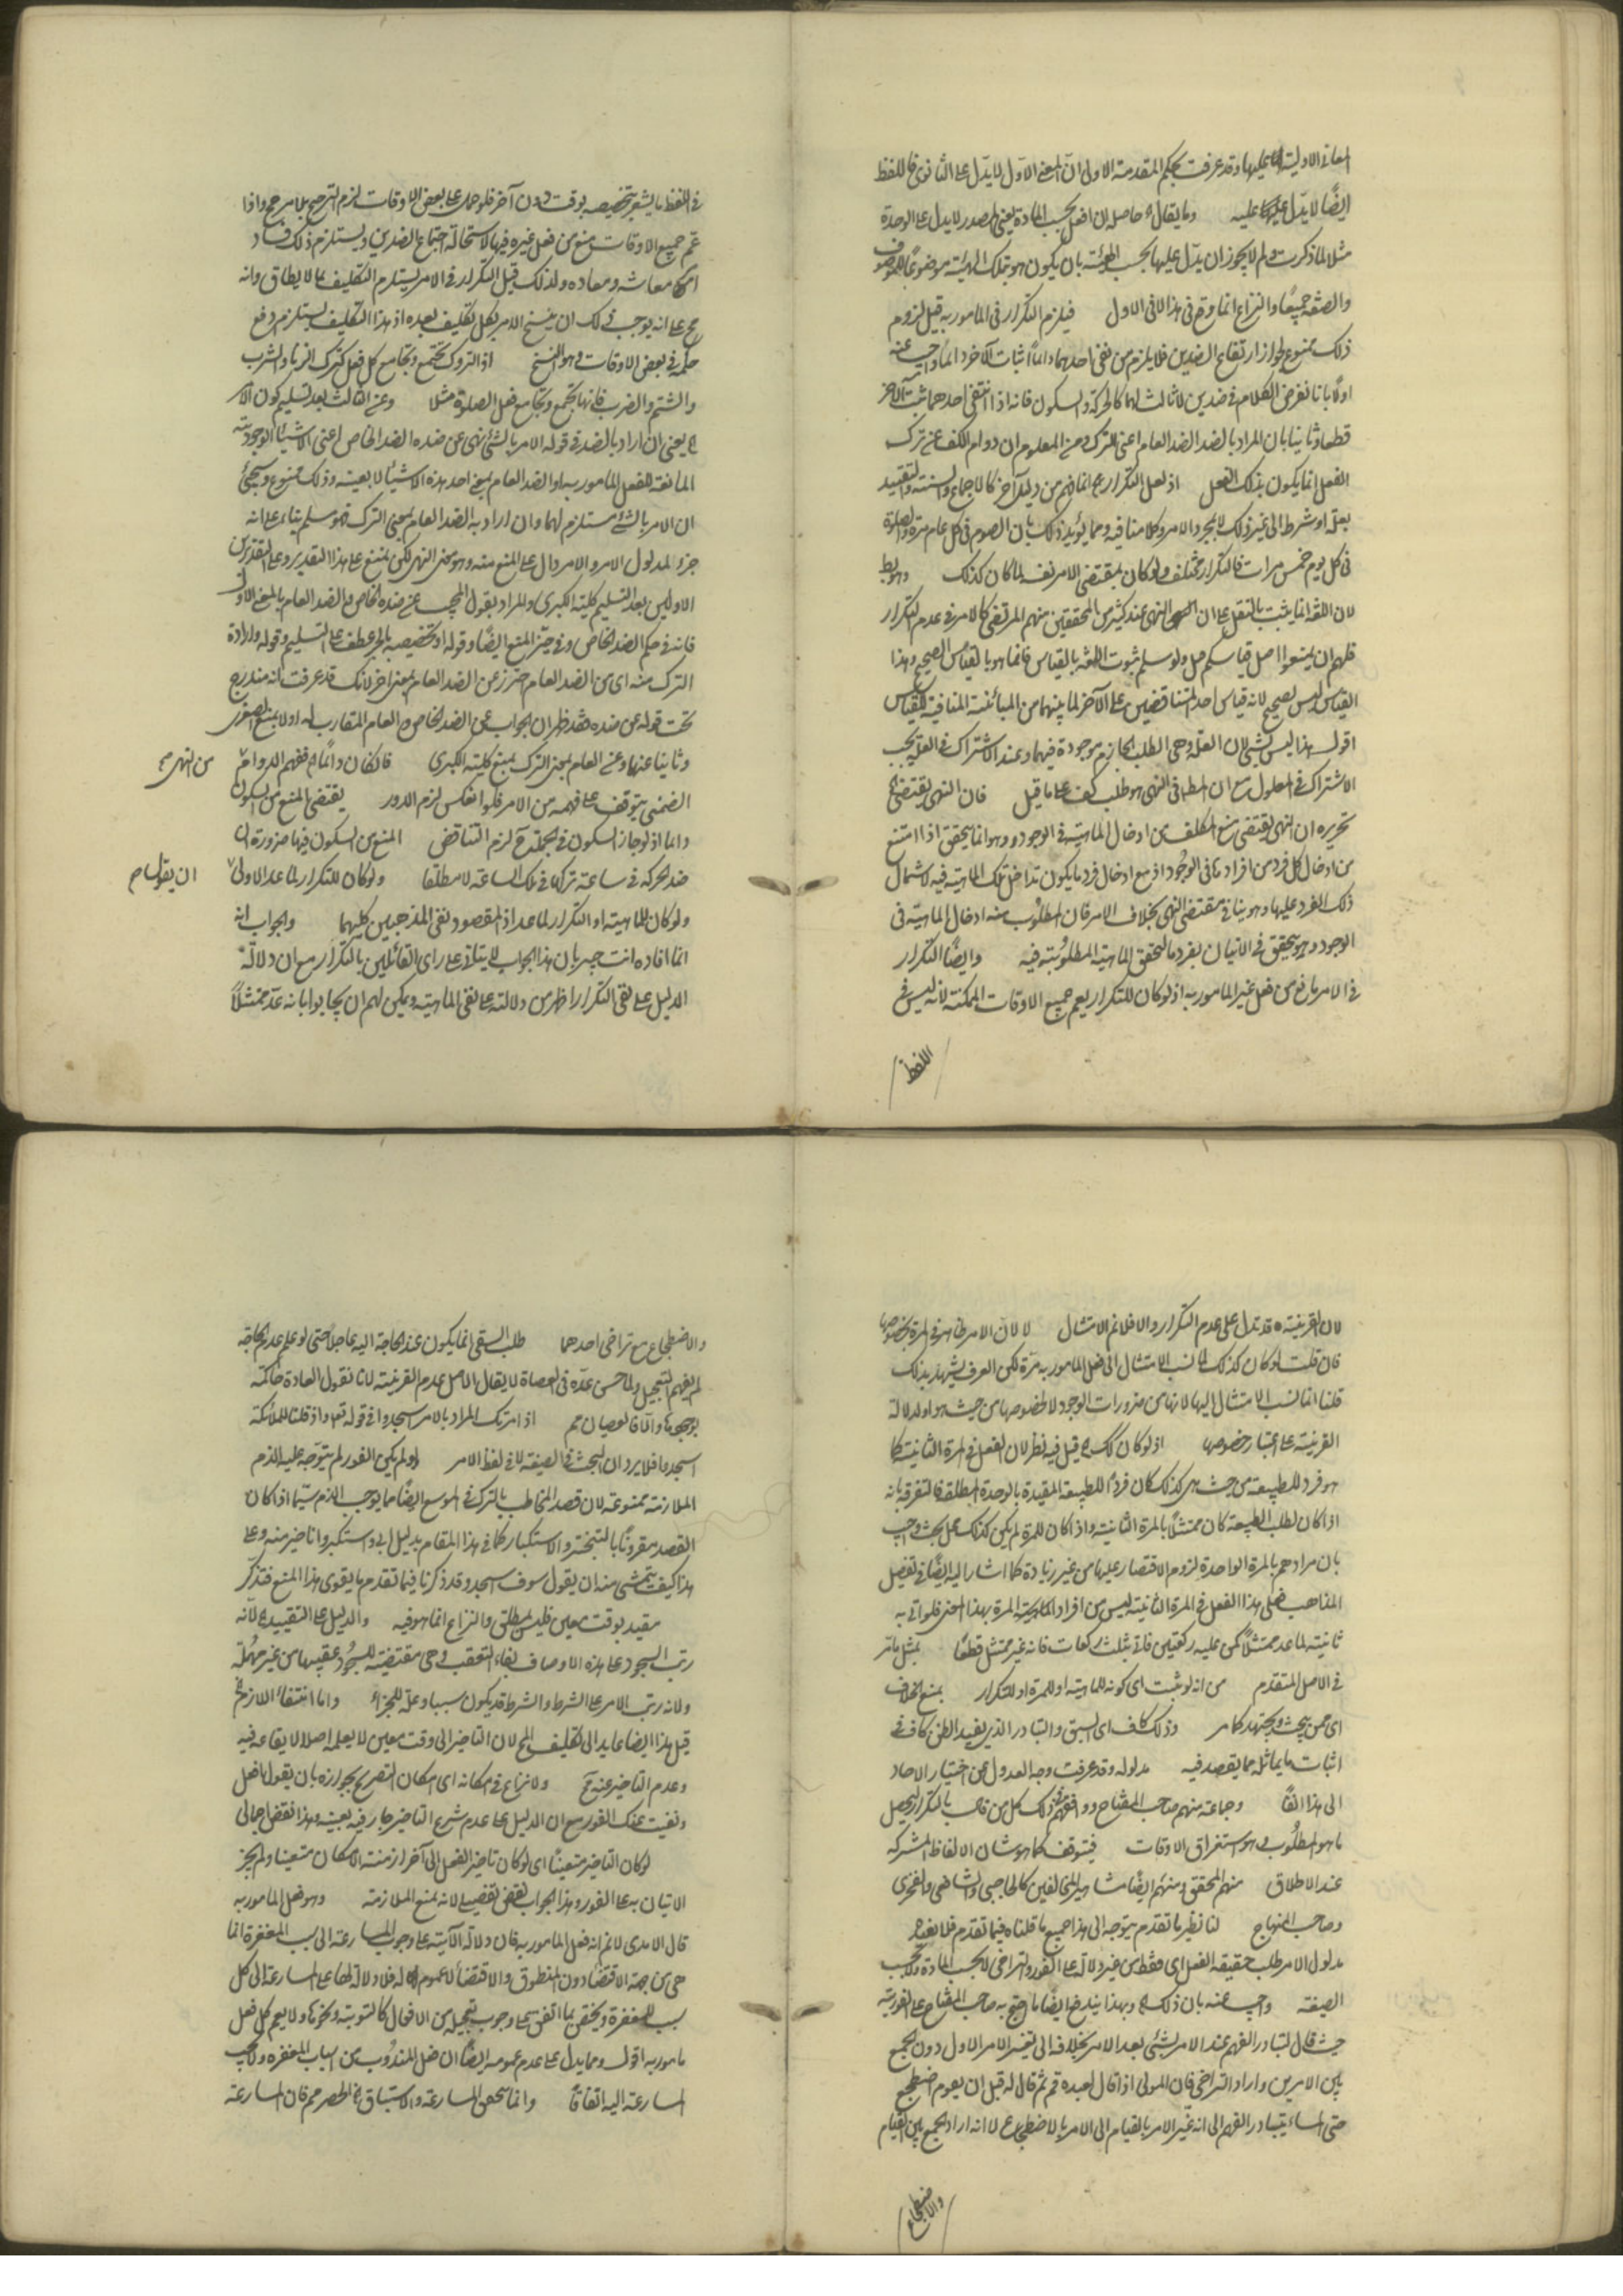 المعانى الاولية عليها وقد عرفت بحكم المقدمة الاولى ان المعنى الاول لا يدل على الثانوى فاللفظ
ايضًا لا يدل عليه وما يقال حاصله ان افعل بحسب المادة يعنى المصدر لا يدل على الوحدة
مثلا لما ذكرت ولم لا يجوز ان يدل عليها بحسب الهيئة بان يكون هو بتلك الهيئة موضوعًا للموصوف
والصفة جميعًا والنزاع انما وقع فى هذا لا فى الاول فيلزم التكرار فى المامور به قيل لزوم
ذلك ممنوع لجواز ارتفاع الضدين فلا يلزم من نفى احدهما دائمًا اثبات الآخر دائمًا واجيب عنه
اولًا بانا نفرض الكلام فى ضدين لا ثالث لهما كالحركة والسكون فانه اذا انتفى احدهما ثبت الآخر
قطعا وثانيا بان المراد بالضد الضد العام اعنى الترك ومن المعلوم ان دوام الكف عن ترك
الفعل انما يكون بذلك الفعل اذ لعل التكرار ح انما فهم من دليل آخر كالاجماع والسنة والتقييد
بعلة او شرط الى غير ذلك لا بمجرد الامر وكلامنا فيه ومما يؤيد ذلك بان الصوم فى كل عام مرة والصلوة
فى كل يوم خمس مرات فالتكرار مختلف ولو كان بمقتضى الامر نفسه لما كان كذلك وهو بط
لان اللغة انما يثبت بالنقل على ان النهى عند كثير من المحققين منهم المرتضى كالامر فى عدم التكرار
فلهم ان يمنعوا اصل قياسكم ولو سلم ثبوت اللغة بالقياس فانما هو بالقياس الصحيح وهذا
القياس ليس بصحيح لانه قياس احد المتناقضين على الآخر لما بينهما من المباينة المنافية للقياس
اقول هذا ليس بشئ لان العلة وهى الطلب الجازم موجودة فيهما وعند الاشتراك فى العلة يجب
الاشتراك فى المعلول مع ان المط فى النهى هو طلب كف على ما قيل فان النهى يقتضى
تحريره ان النهى يقتضى منع المكلف من ادخال الماهية فى الوجود وهو انما يتحقق اذا امتنع
من ادخال كل فرد من افرادها فى الوجود اذ مع ادخال فرد ما يكون قد ادخل تلك الماهية فيه لاشتمال
ذلك الفرد عليها وهو ينافى مقتضى النهى بخلاف الامر فان المطلوب منه ادخال الماهية فى
الوجود وهو يتحقق فى الاتيان بفرد ما لتحقق الماهية المطلوبة فيه وايضًا التكرار
فى الامر مانع من فعل غير المامور به اذ لو كان للتكرار يعم جميع الاوقات الممكنة لانه ليس فى
اللفظ
فى اللفظ ما يشعر بتخصيصه بوقت دون آخر فلو حمل على بعض الاوقات لزم الترجيح بلا مرجح واذا
عم جميع الاوقات منع من فعل غيره فيها لاستحالة اجتماع الضدين ويستلزم ذلك فساد
امر معاشه ومعاده ولذلك قيل التكرار فى الامر يستلزم التكليف بما لا يطاق وانه
مح على انه يوجب ذلك ان ينسخ الامر بكل تكليف بعده اذ هذا التكليف يستلزم رفع
حكمه فى بعض الاوقات وهو النسخ اذ التروك تجتمع وتجامع كل فعل كترك الزنا والشرب
والشتم والضرب فانها تجتمع وتجامع فعل الصلوة مثلا وعن الثالث بعد تسليم كون الامر
الخ يعنى ان اراد بالضد فى قوله الامر بالشئ نهى عن ضده الضد الخاص اعنى الاشياء الوجودية
المانعة للفعل المامور به او الضد العام بمعنى احد هذه الاشياء لا بعينه وذلك ممنوع وسيجئ
ان الامر بالشئ مستلزم لهما وان اراد به الضد العام بمعنى الترك فهو مسلم بناء على انه
جزء لمدلول الامر والامر دال على المنع منه وهو معنى النهى لكن يمنع على هذا التقدير وعلى التقديرين
الاولين بعد التسليم كلية الكبرى والمراد بقول المجيب عن ضده الخاص والضد العام بالمعنى الاول
فانه فى حكم الضد الخاص وفى حيز المنع ايضًا وقوله او تخصيصه بالجر عطف على التسليم وقوله وارادة
الترك منه اى من الضد العام احترز عن الضد العام بمعنى آخر لانك قد عرفت انه مندرج
تحت قوله عن ضده فقد ظهر ان الجواب عن الضد الخاص والعام المقارب له اولا بمنع الصغرى
وثانيا عنها وعن العام بمعنى الترك بمنع كلية الكبرى فان كان دائمًا ففهم الدوام من النهى صح
الضمنى يتوقف على فهمه من الامر فلو انعكس لزم الدور يقتضى المنع من السكون
دائما اذ لو جاز السكون فى الجملة ح لزم التناقض المنع من السكون فيها ضرورة ان
ضد الحركة فى ساعة تركها فى تلك الساعة لا مطلقا ولو كان للتكرار لما عد الاولى ان يقول صح
ولو كان للماهية او التكرار لما عد اذ المقصود نفى المذهبين كليهما والجواب انه
انما افاده انت خبير بان هذا الجواب لا يتاتى على راى القائلين بالتكرار مع ان دلالة
الدليل على نفى التكرار اظهر من دلالته على نفى الماهية ويمكن لهم ان يجابوا بانه عد ممتثلًا
لان القرينة قد تدل على عدم التكرار والا فلا نم الامتثال لا لان الامر ظاهر فى المرة بخصوصها
فان قلت لو كان كذلك لما نسب الامتثال الى فعل المامور به مرة لكن العرف يشهد بذلك
قلنا انما نسب الامتثال اليها لانها من ضرورات الوجود لا لخصوصها من حيث هو او لدلالة
القرينة على اعتبار خصوصها اذ لو كان كذلك قيل فيه نظر لان الفعل فى المرة الثانية كما
هو فرد للطبيعة من حيث هى كذلك كان فردًا للطبيعة المقيدة بالوحدة المطلقة فالتفرقة بانه
اذا كان لطلب الطبيعة كان ممتثلًا بالمرة الثانية واذا كان للمرة لم يكن كذلك محل بحث واجيب
بان مرادهم بالمرة الواحدة لزوم الاقتصار عليها من غير زيادة كما اشار اليه ايضًا فى تفصيل
المذاهب فعلى هذا الفعل فى المرة الثانية ليس من افراد الماهية المرة بهذا المعنى فلو اتى به
ثانية لما عد ممتثلًا كمن عليه ركعتين فاتى بثلث ركعات فانه غير ممتثل قطعًا بمثل ما مر
فى الاصل المتقدم من انه لو ثبت اى كونه للماهية او للمرة او للتكرار بمنع الخلاف
اى ممن يبحث ويجتهد كما مر وذلك كاف اى السبق والتبادر الذى يفيد الظن كاف فى
اثبات ما يماثله مما يقصد فيه مدلوله وقد عرفت وجه العدول عن اختيار الآحاد
الى هذا آنفًا وجماعة منهم صاحب المفتاح ووافقهم فى ذلك كل من قال بالتكرار ليحصل
ما هو المطلوب وهو استغراق الاوقات فيتوقف كما هو شان الالفاظ المشتركة
عند الاطلاق منهم المحقق ومنهم ايضًا مشاهير المخالفين كالحاجبى والشافعى والفخرى
وصاحب المنهاج لنا نظير ما تقدم يتوجه الى هذا جميع ما قلناه فيما تقدم فلا نعيده
مدلول الامر طلب حقيقة الفعل اى فقط من غير دلالة على الفور والتراخى لا بحسب المادة ولا بحسب
الصيغة واجيب عنه بان ذلك وبهذا يندفع ايضًا ما احتج به صاحب المفتاح على الفورية
حيث قال لتبادر الفهم عند الامر بشئ بعد الامر بخلافه الى تغيير الامر الاول دون الجمع
بين الامرين واراد التراخى فان المولى اذا قال لعبده قم ثم قال له قبل ان يقوم اضطجع
حتى المساء يتبادر الفهم الى انه غيّر الامر بالقيام الى الامر بالاضطجاع لا انه اراد الجمع بين القيام
والاضطجاع
والاضطجاع مع تراخى احدهما طلب السقى انما يكون عند الحاجة اليه عاجلًا حتى لو علم عدم الحاجة
لم يفهم التعجيل ولما حسن عده فى العصاة لا يقال الاصل عدم القرينة لانا نقول العادة حاكمة
بوجودها والا فالعصيان مم اذ امرتك المراد بالامر اسجدوا فى قوله تعه واذ قلنا للملائكة
اسجدوا فلا يرد ان البحث فى الصيغة لا فى لفظ الامر ولو لم يكن الفور لم يتوجه عليه الذم
الملازمة ممنوعة لان قصد المخاطب بالترك فى الموسع ايضًا مما يوجب الذم سيما اذا كان
القصد مقرونًا بالتبختر والاستكبار كما فى هذا المقام بدليل ابى واستكبر وانا خير منه وعلى
هذا كيف يتمشى منه ان يقول سوف اسجد وقد ذكرنا فيما تقدم ما يقوى هذا المنع فتذكر
مقيد بوقت معين فليس بمطلق والنزاع انما هو فيه والدليل على التقييد لانه
رتب السجود على هذه الاوصاف بفاء التعقيب وهى مقتضية للسجود عقيبها من غير مهلة
ولانه رتب الامر على الشرط والشرط قد يكون سببا وعلة للجزاء واما انتفاء اللازم فى
قيل هذا ايضا عايد الى تكليف المح لان التاخير الى وقت معين لا يعلمه اصلا لا يقاعه فيه
وعدم التاخير عنه مح ولا نزاع فى امكانه اى امكان التصريح بجوازه بان يقول افعل
ونفيت عنك الفور مع ان الدليل على عدم شرع التاخير جار فيه بعينه وهذا نقض اجمالى
لو كان التاخير متعينًا اى لو كان تاخير الفعل الى آخر ازمنة الامكان متعينا ولم يجز
الاتيان به على الفور وهذا الجواب نقض تفصيلى لانه يمنع الملازمة وهو فعل المامور به
قال الآمدى لا نم انه فعل المامور به فان دلالة الآية على وجوب المسارعة الى سبب المغفرة انما
هى من جهة الاقتضاء دون المنطوق والاقتضاء لا عموم له فلا دلالة لها على المسارعة الى كل
سبب للمغفرة ويختص بما اتفق على وجوب تعجيله من الافعال كالتوبة ونحوها ولا يعم كل فعل
مامور به اقول ومما يدل على عدم عمومه ايضًا ان فعل المندوب من اسباب المغفرة ولا يجب
المسارعة اليه اتفاقًا وانما يتحقق المسارعة والاستباق الخ الحصر مم فان المسارعة